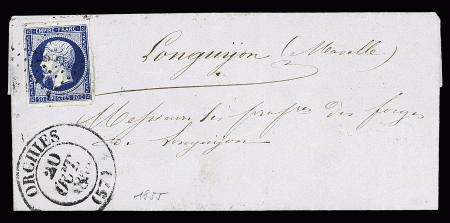 EMPIRE FRANC.
20 c POSTES 20 c
Longuijon (Moselle)
Messieurs les des forges
de Longuijon
ORCHIES
20
OCT
(57)
1855